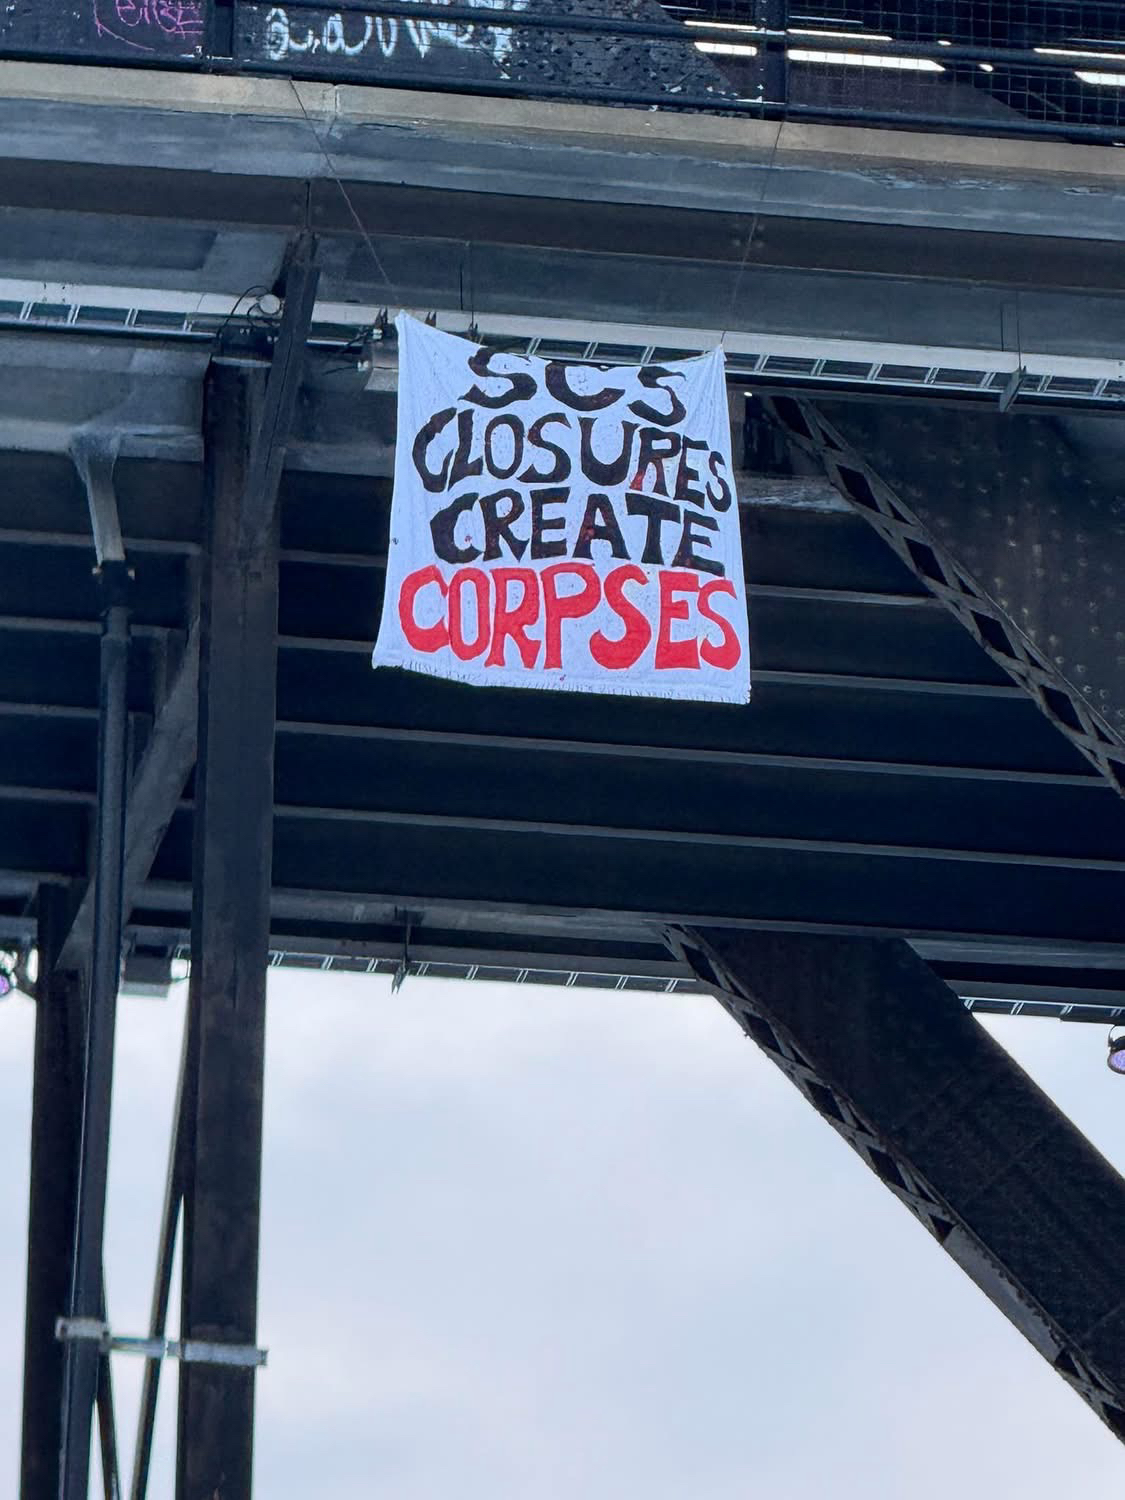 SCS
CLOSURES
CREATE
CORPSES